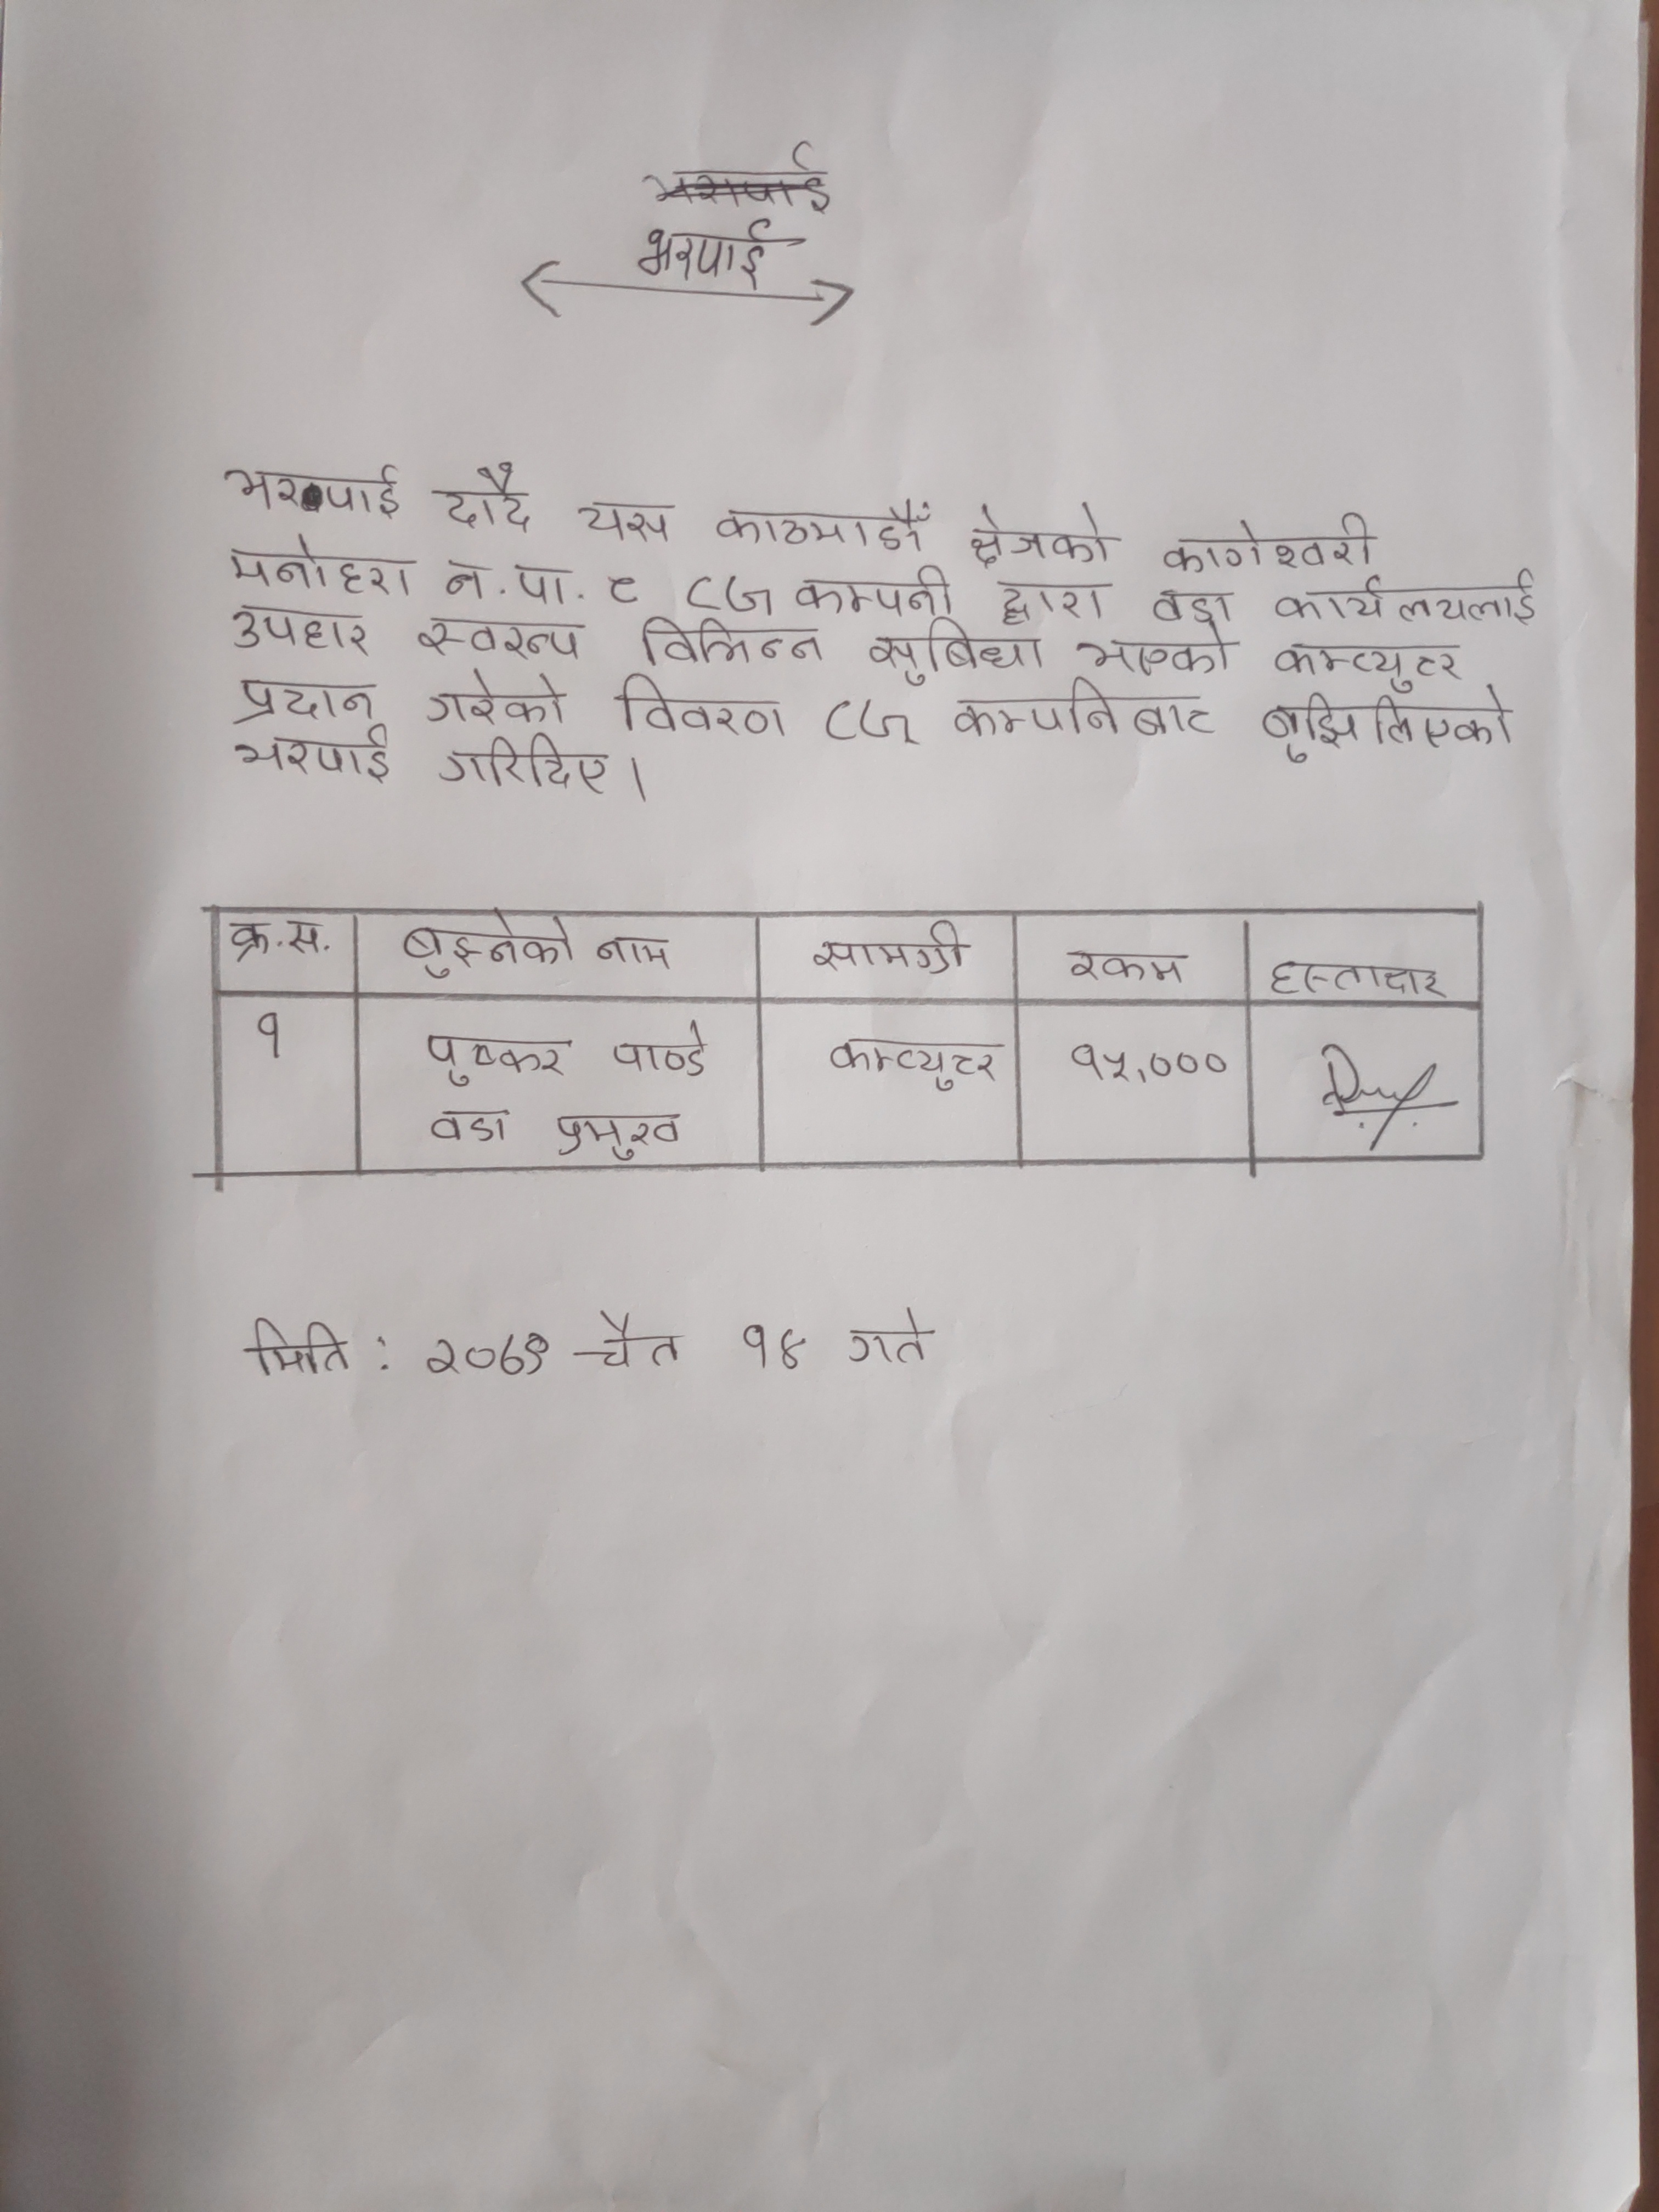 भरपाई
भरपाई
भरपाई दादै यस काठमाडौँ क्षेत्रको कागेश्वरी
मनोहरा न.पा. ८ CG कम्पनी द्वारा वडा कार्यलयलाई
उपहार स्वरुप विभिन्न सुबिधा भएको कम्प्युटर
प्रदान गरेको विवरण CG कम्पनिबाट बुझिलिएको
भरपाई गरिदिए।
क्र.स. बुझ्नेको नाम सामग्री रकम हस्ताक्षर
१ पुष्कर पाण्डे कम्प्युटर १५,०००
वडा प्रमुख
मिति : २०७९ चैत १४ गते